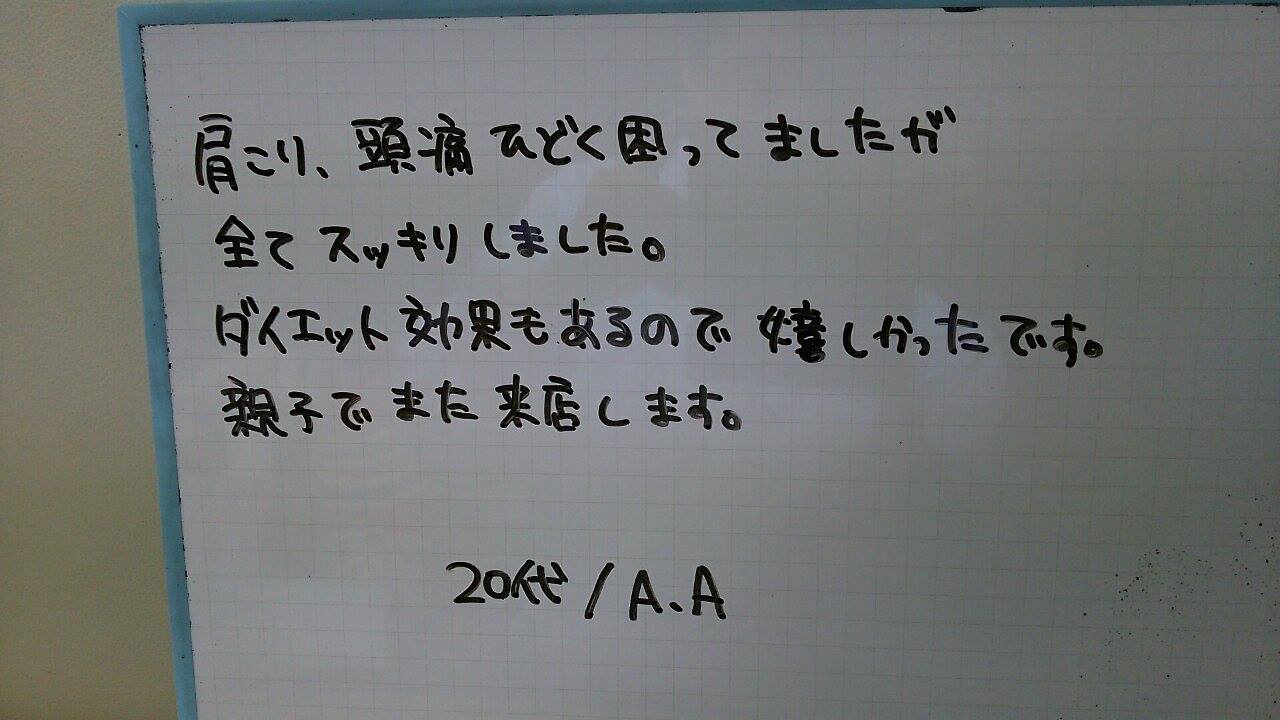 肩こり、頭痛ひどく困ってましたが
全てスッキリしました。
ダイエット効果もあるので嬉しかったです。
親子でまた来店します。
20代/A.A